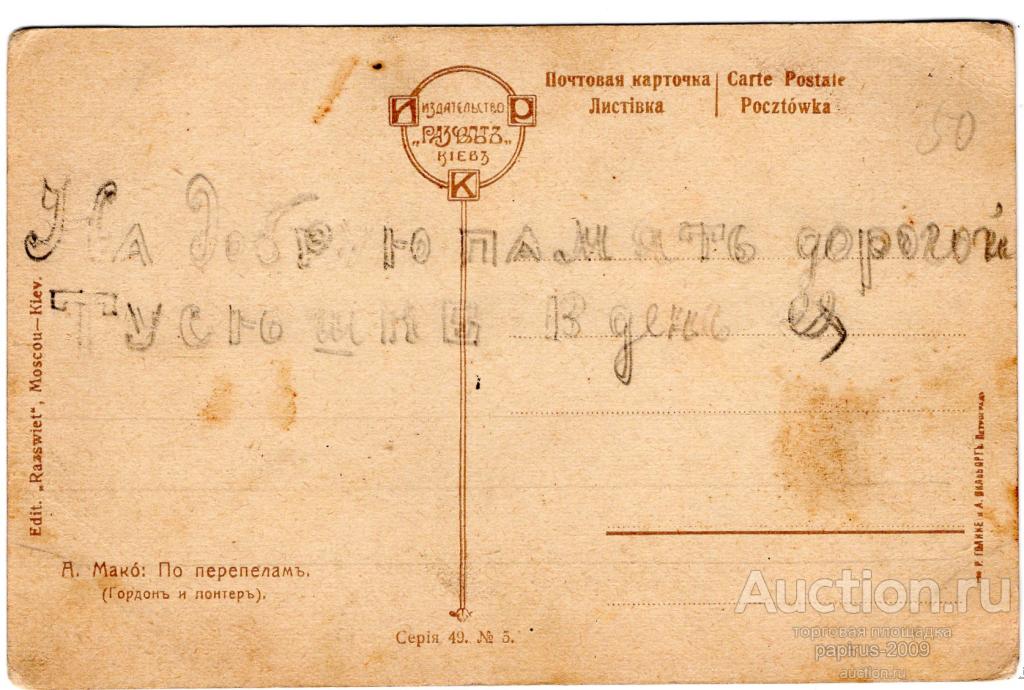 Почтовая карточка | Carte Postale
Листівка | Pocztówka
И Р
ИЗДАТЕЛЬСТВО
„РАЗСВѢТЪ“
КІЕВЪ
К
50
На добрую память дорогой
Тусньшке в день
Edit. „Rasswiet“, Moscou—Kiev.
А. Мако́: По перепеламъ.
(Гордонъ и понтеръ).
Серія 49. № 5.
Р. ГОЛИКЕ и А. ВИЛЬБОРГЪ. Петроградъ
Auction.ru
торговая площадка
papirus-2009
auction.ru